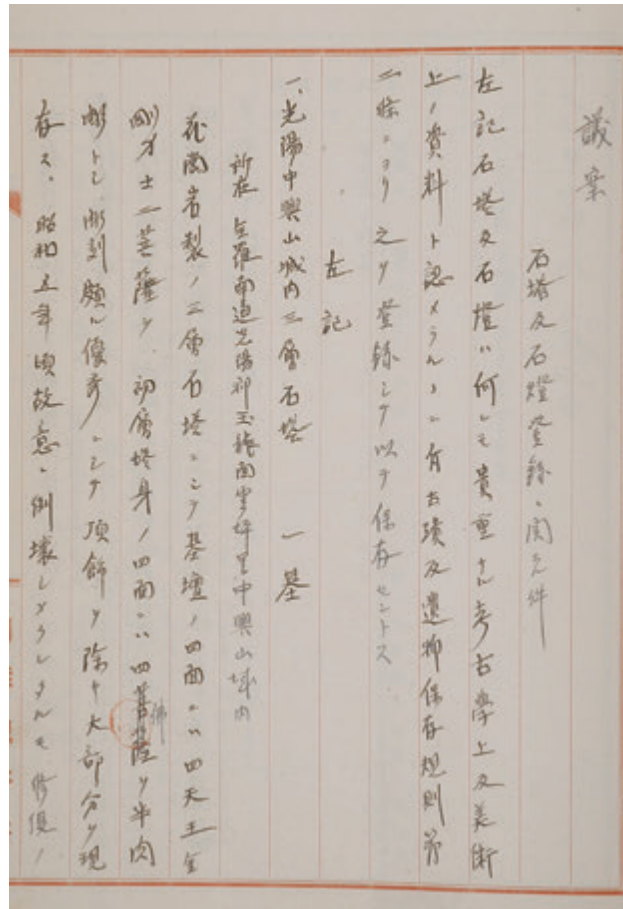 議案
石塔及石燈登録ニ関スル件
左記石塔及石燈ハ何レモ貴重ナル考古学上及美術
上ノ資料ト認メラルルニ付古蹟及遺物保存規則第
二條ニヨリ之ヲ登録シテ以テ保存セントス
左記
一、光陽中興山城内三層石塔 一基
所在 全羅南道光陽郡玉龍面雲坪里中興山城内
花崗岩製ノ三層石塔ニシテ基壇ノ四面ニハ四天王金
剛力士二菩薩ヲ、初層塔身ノ四面ニハ四菩薩ヲ半肉
佛
彫トシ彫刻頗ル優秀ニシテ頂飾ヲ除キ大部分ヲ現
存ス、昭和五年頃故意ニ倒壊シラレタルモ修復ノ